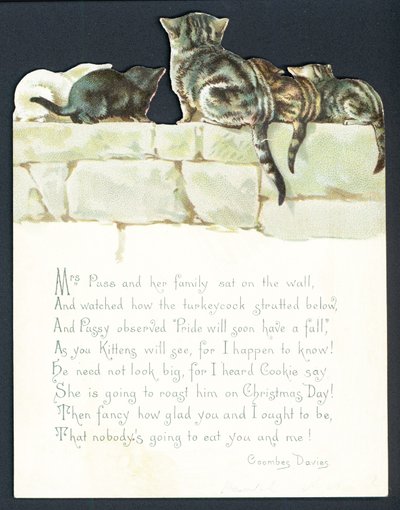 Mrs Puss and her family sat on the wall,
And watched how the turkeycock strutted below,
And Pussy observed "Pride will soon have a fall,"
As you Kittens will see, for I happen to know!
He need not look big, for I heard Cookie say
She is going to roast him on Christmas Day!
Then fancy how glad you and I ought to be,
That nobody's going to eat you and me!
Coombes Davies